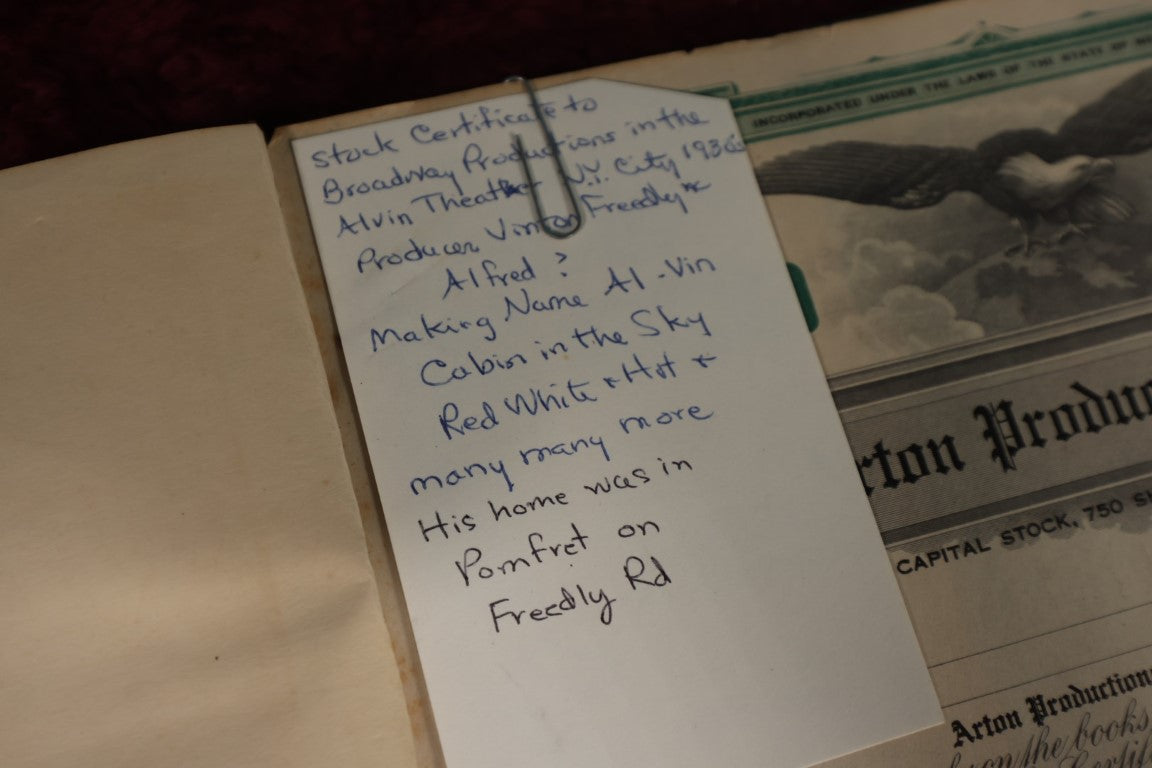 Stock Certificate to
Broadway Productions in the
Alvin Theatker N.Y. City 1930s
Producer Vinton Freedly *
Alfred ?
Making Name Al-Vin
Cabin in the Sky
Red White & Hot &
many many more
His home was in
Pomfret on
Freedly Rd
INCORPORATED UNDER THE LAWS OF THE STATE OF
rton Produc
CAPITAL STOCK, 750 SH
Arton Production
on the books
Certif